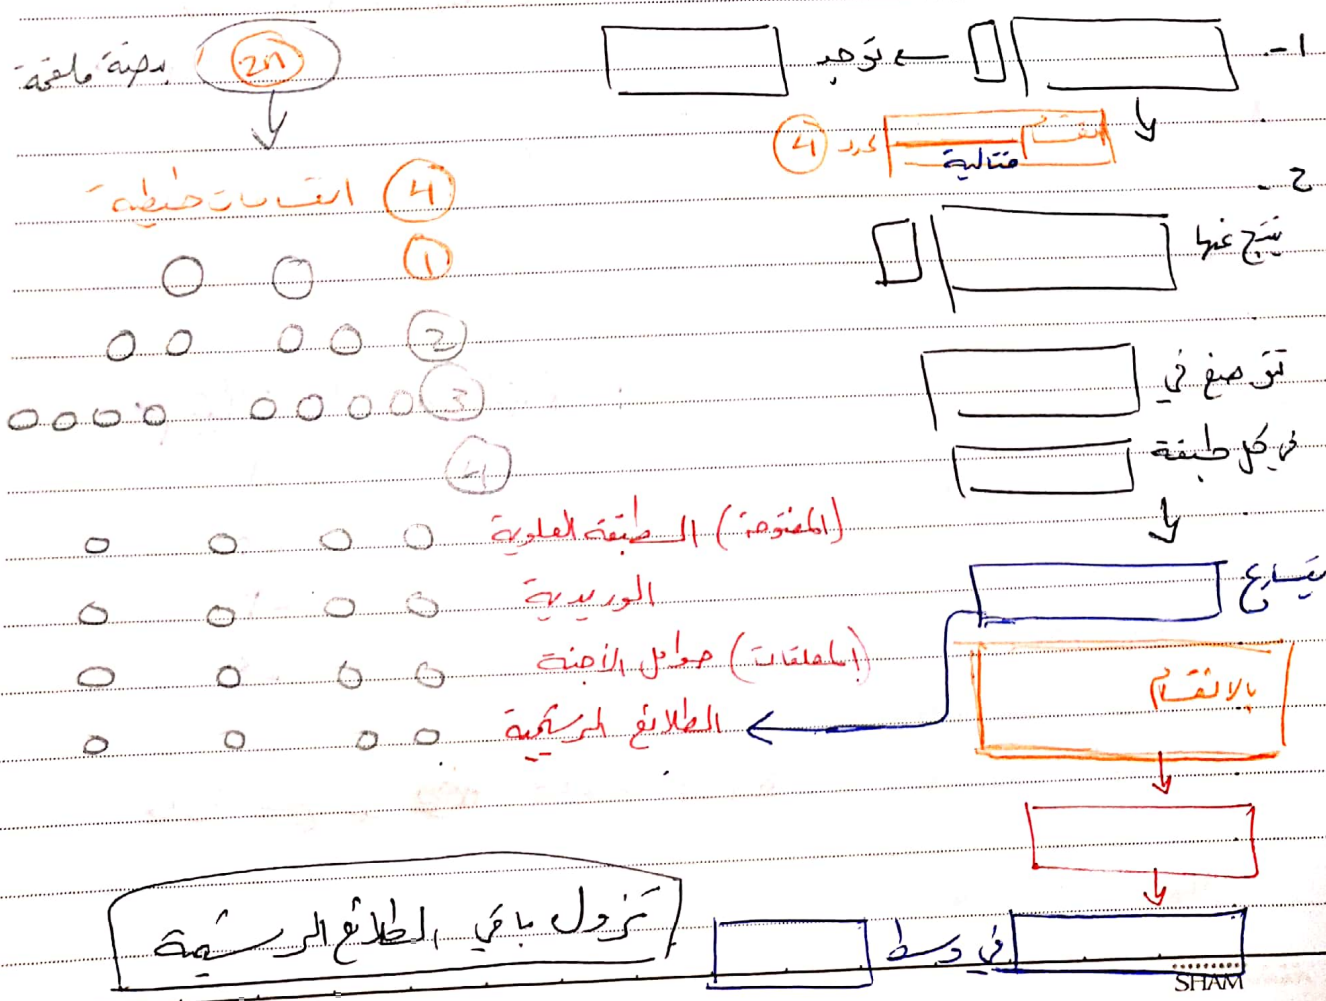 1-
توجد
انقسام
متالية
عدد 4
2-
ينتج عنها
تتوضع في
في كل طبقة
يتسارع
بالانقسام
في وسط
بيضة ملقحة 2n
4 انقسامات خيطية
1
2
3
4
(المفتوحة) الطبقة العلوية
الوريدية
(المعلقات) حوامل الأجنة
الطلائع الرشيمية
تزول باقي الطلائع الرشيمية
SHAM